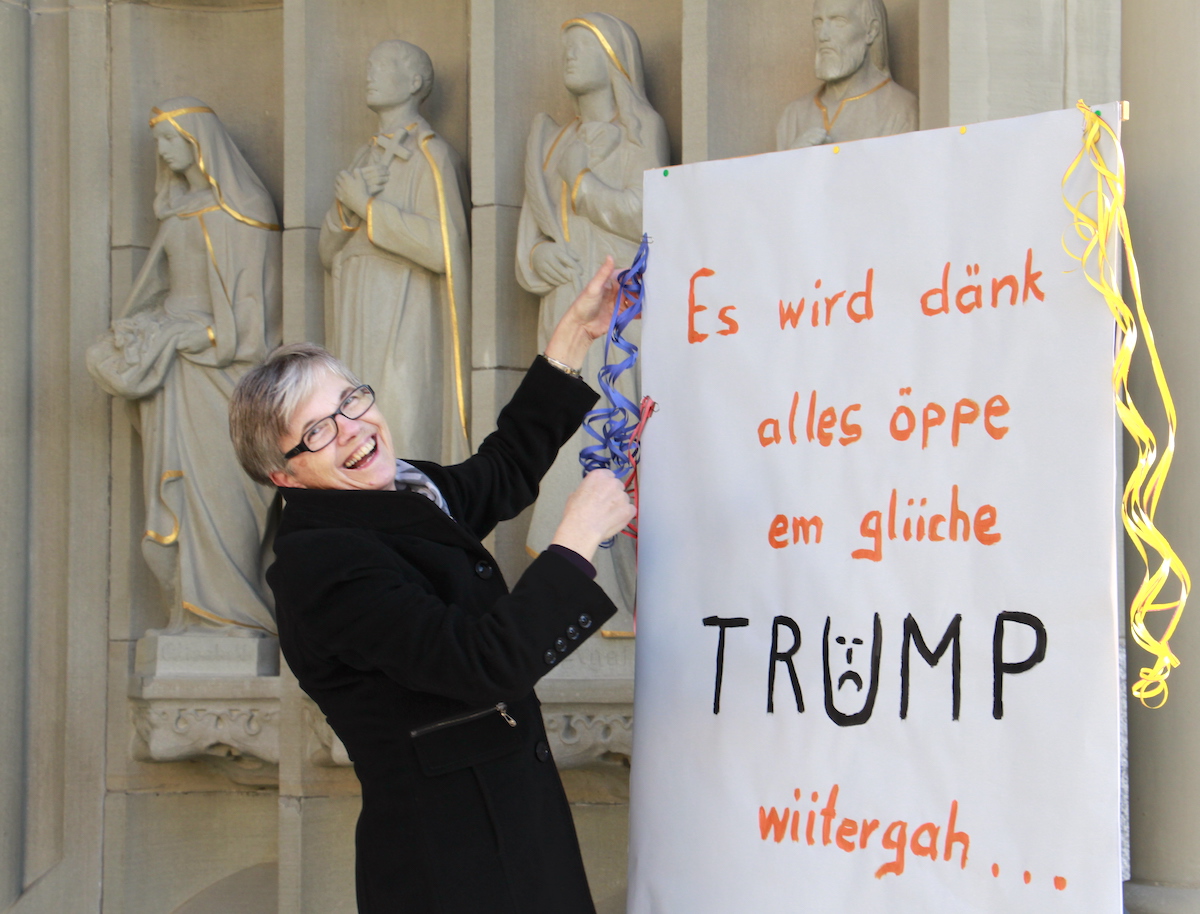 Es wird dänk
alles öppe
em gliiche
TRUMP
wiitergah...